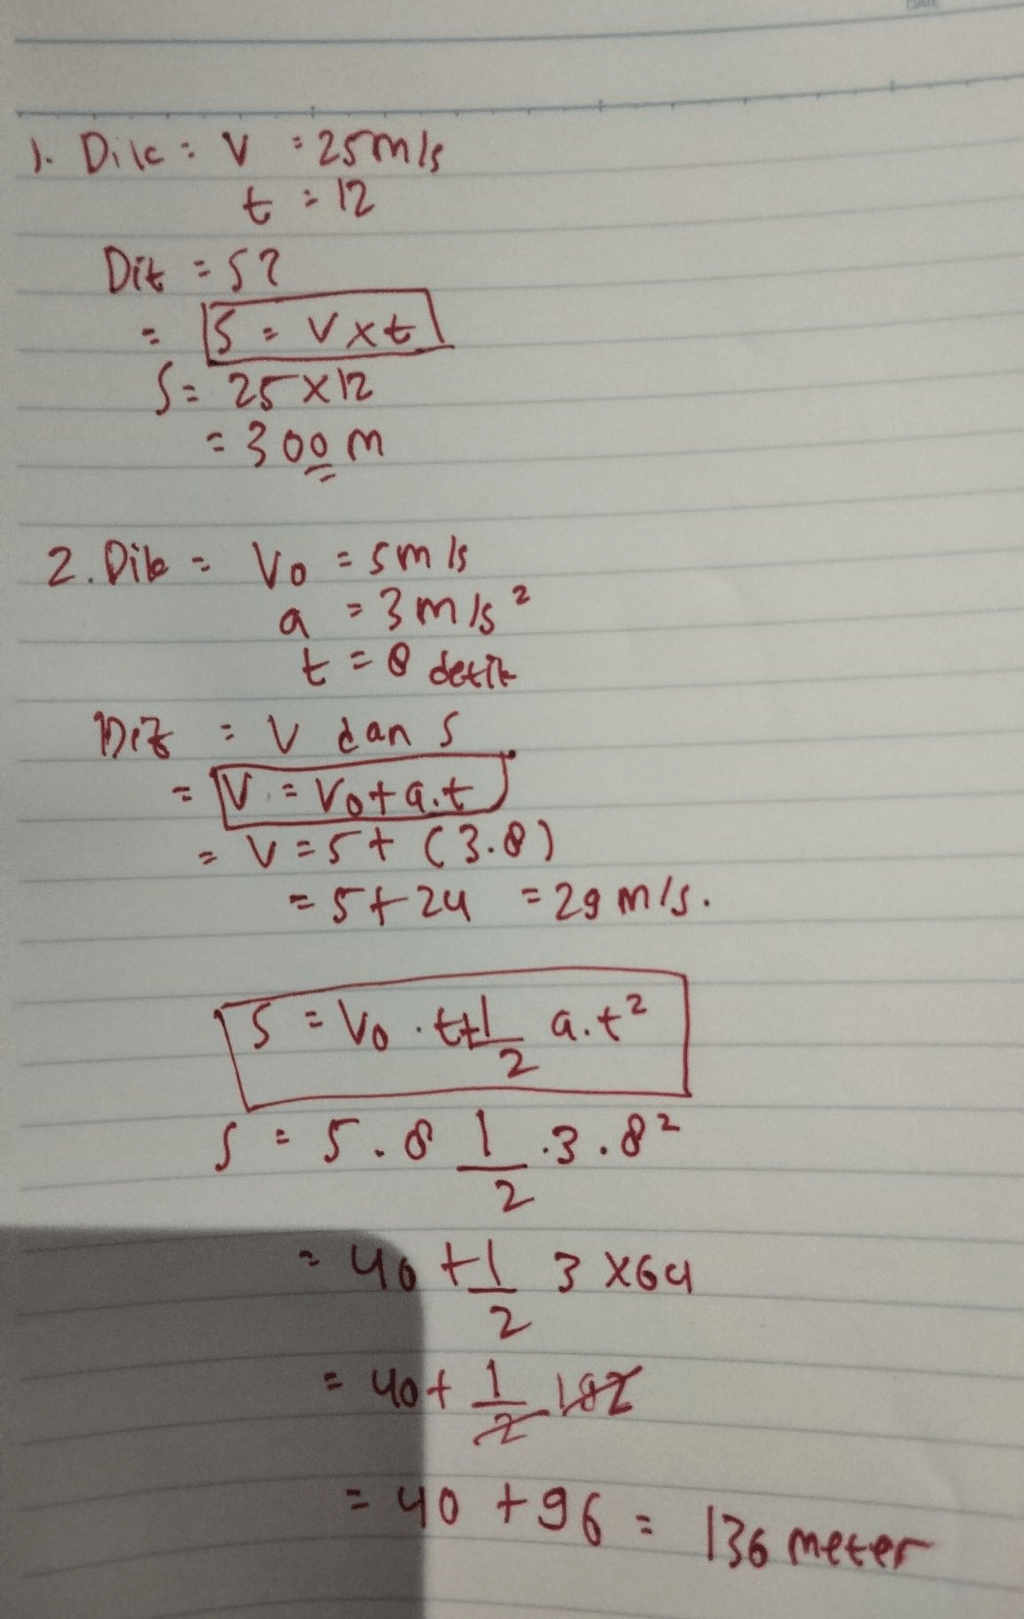 1. Dik : V = 25 m/s
t = 12
Dit = S?
= S = V x t
S = 25 x 12
= 300 m
2. Dik = Vo = 5 m/s
a = 3 m/s²
t = 8 detik
Dit = V dan S
= V = Vo + a.t
= V = 5 + (3.8)
= 5 + 24 = 29 m/s.
S = Vo . t + 1/2 a.t²
S = 5.8 1/2 .3.8²
= 40 + 1/2 3 x 64
= 40 + 1/2 192
= 40 + 96 = 136 meter